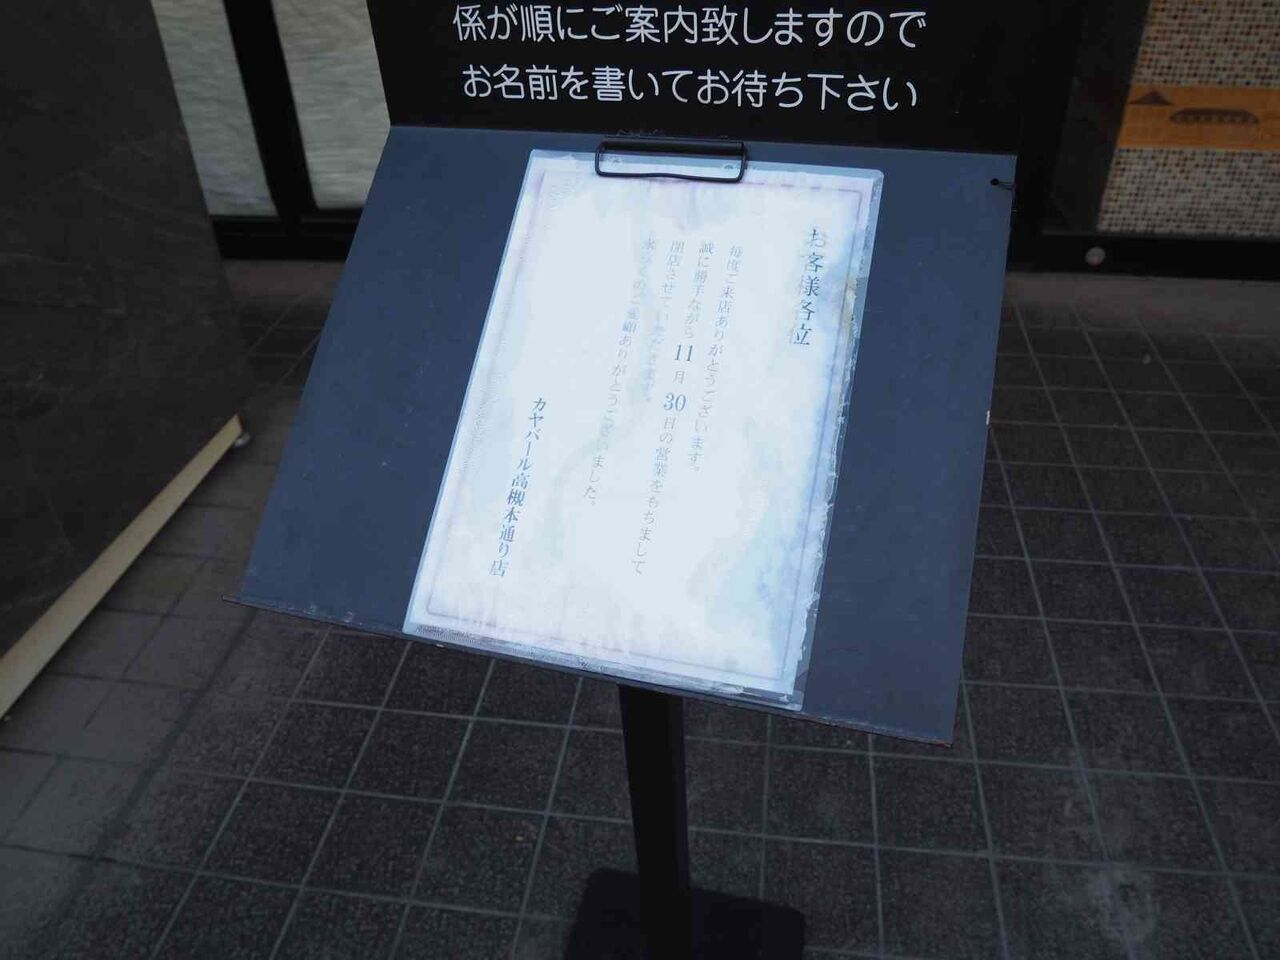 係が順にご案内致しますので
お名前を書いてお待ち下さい
お客様各位
毎度ご来店ありがとうございます。
誠に勝手ながら11月30日の営業をもちまして
閉店させていただきます。
永らくのご愛顧ありがとうございました。
カヤバール高槻本通り店